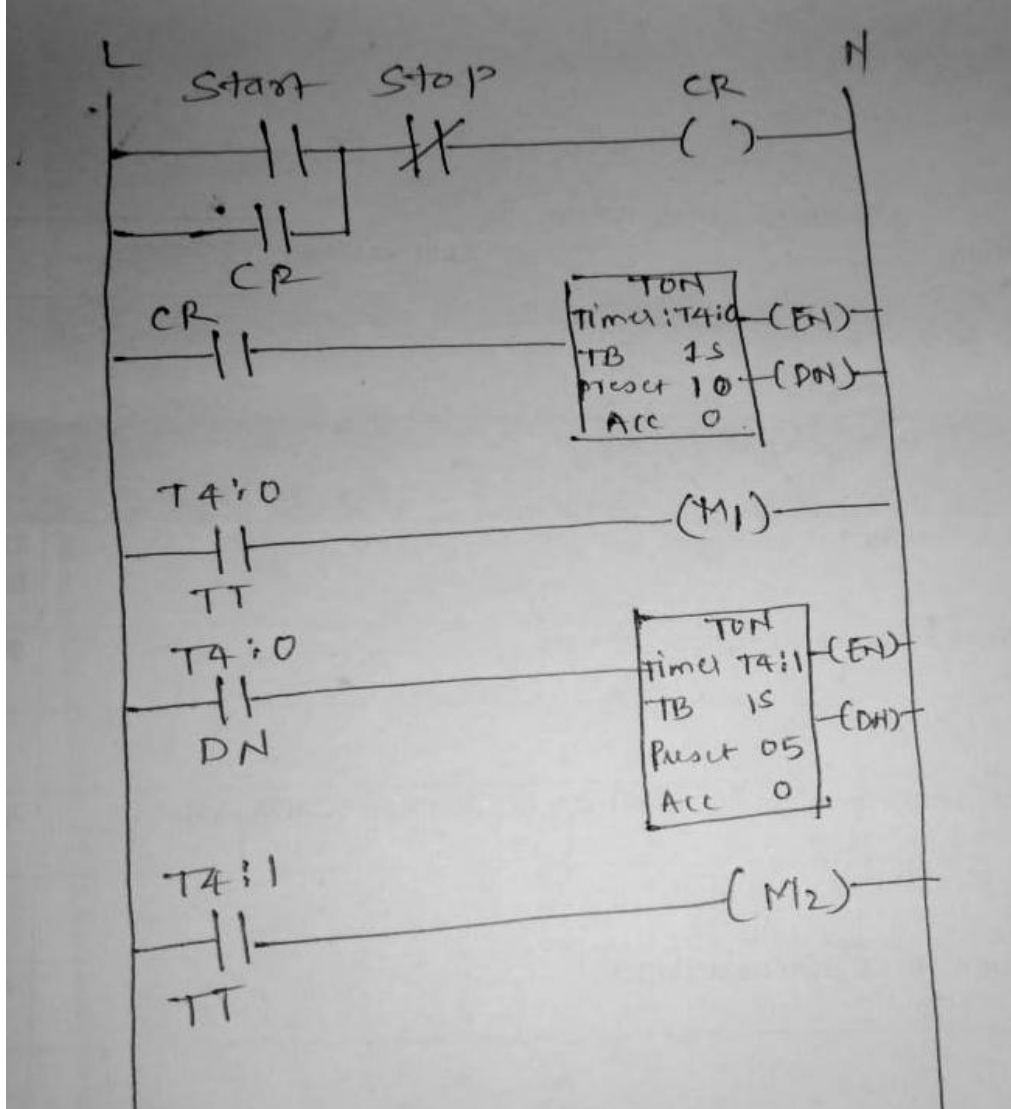 L N
Start Stop CR
( )
CR
CR
TON
Timer: T4:0 (EN)
TB 1S
preset 10 (DN)
Acc 0
T4:0
(M1)
TT
T4:0
DN
TON
Timer T4:1 (EN)
TB 1S
(DN)
Preset 05
Acc 0
T4:1
(M2)
TT